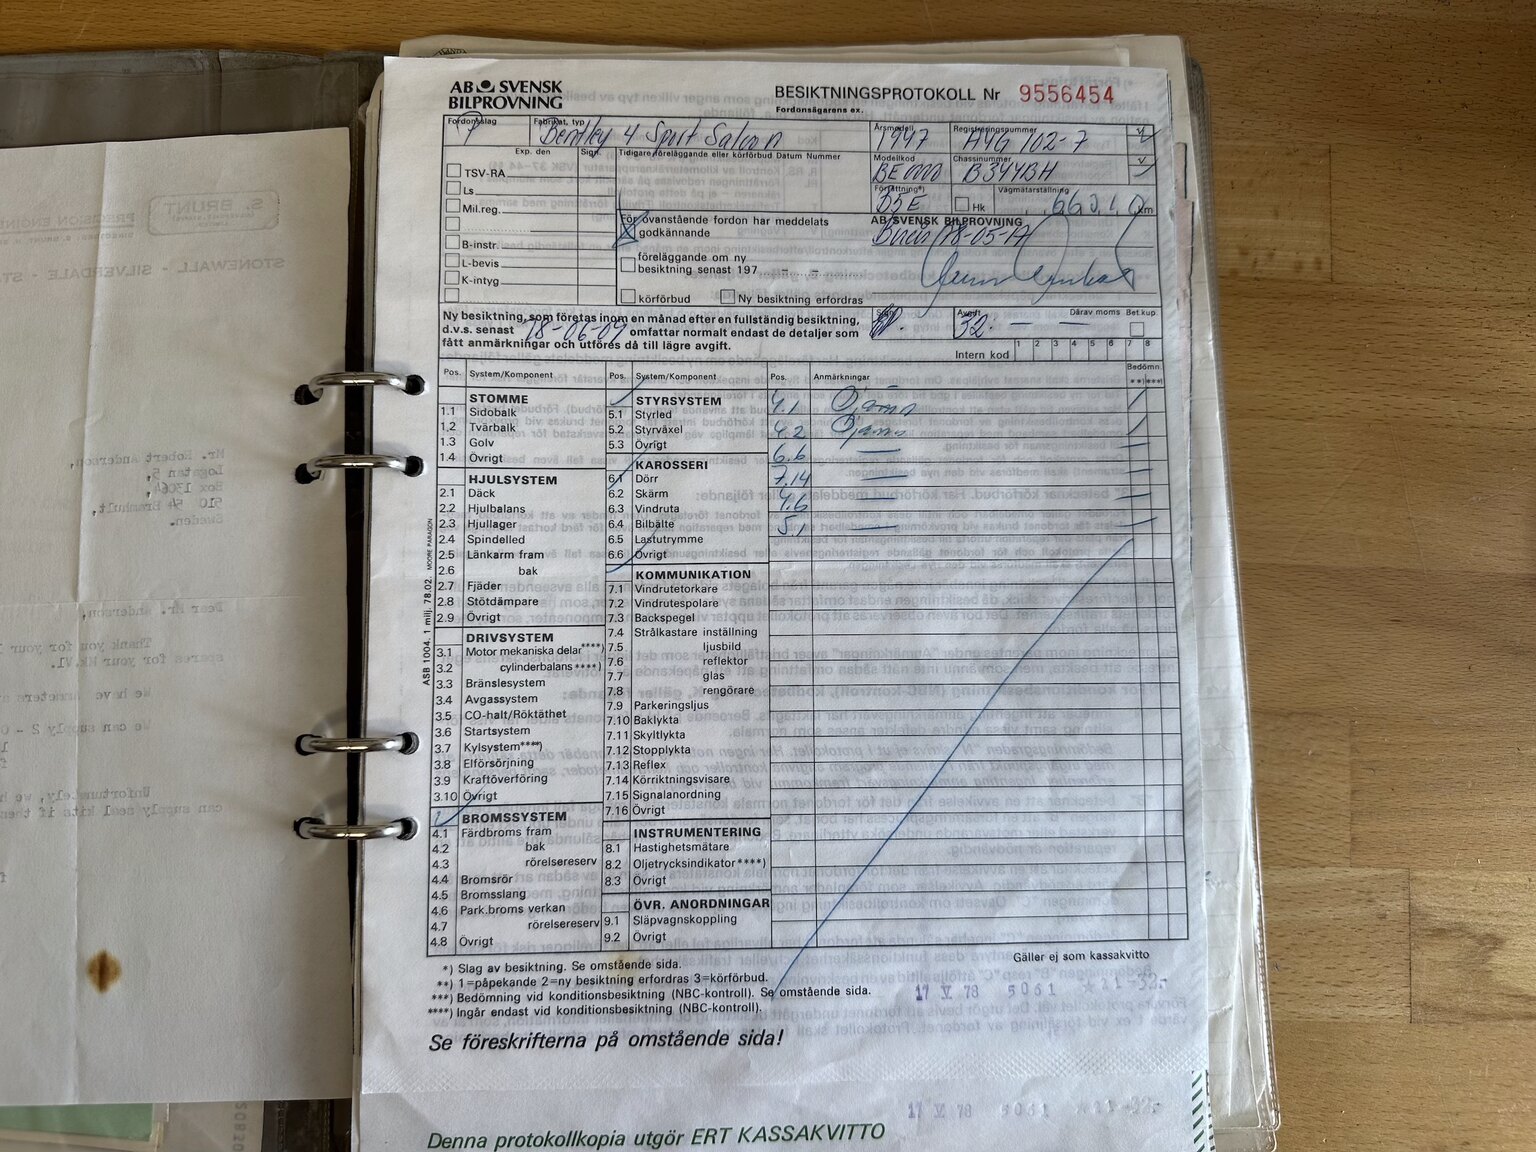 AB SVENSK
BILPROVNING
BESIKTNINGSPROTOKOLL Nr 9556454
Fordonsägarens ex.
Fordonsslag
P
Fabrikat, typ
Bentley 4 Sport Saloon
Årsmodell
1947
Registreringsnummer
AYG 102-7
Exp. den Sign.
Tidigare föreläggande eller körförbud Datum Nummer
Modellkod
Chassinummer
B344BH
TSV-RA
Ls
Mil.reg.
B-instr.
L-bevis
K-intyg
Författning*)
Hk
Vägmätarställning
km
För ovanstående fordon har meddelats
godkännande
AB SVENSK BILPROVNING
78-05-17
föreläggande om ny
besiktning senast 197
körförbud
Ny besiktning erfordras
Ny besiktning, som företas inom en månad efter en fullständig besiktning,
d.v.s. senast 78-06-09 omfattar normalt endast de detaljer som
fått anmärkningar och utföres då till lägre avgift.
Sign.
Avgift
32:
Därav moms
Bet kup.
Intern kod 1 2 3 4 5 6 7 8
Pos. System/Komponent
STOMME
1.1 Sidobalk
1.2 Tvärbalk
1.3 Golv
1.4 Övrigt
HJULSYSTEM
2.1 Däck
2.2 Hjulbalans
2.3 Hjullager
2.4 Spindelled
2.5 Länkarm fram
2.6 bak
2.7 Fjäder
2.8 Stötdämpare
2.9 Övrigt
DRIVSYSTEM
3.1 Motor mekaniska delar****)
3.2 cylinderbalans****)
3.3 Bränslesystem
3.4 Avgassystem
3.5 CO-halt/Röktäthet
3.6 Startsystem
3.7 Kylsystem****)
3.8 Elförsörjning
3.9 Kraftöverföring
3.10 Övrigt
BROMSSYSTEM
4.1 Färdbroms fram
4.2 bak
4.3 rörelsereserv
4.4 Bromsrör
4.5 Bromsslang
4.6 Park.broms verkan
4.7 rörelsereserv
4.8 Övrigt
Pos. System/Komponent
STYRSYSTEM
5.1 Styrled
5.2 Styrväxel
5.3 Övrigt
KAROSSERI
6.1 Dörr
6.2 Skärm
6.3 Vindruta
6.4 Bilbälte
6.5 Lastutrymme
6.6 Övrigt
KOMMUNIKATION
7.1 Vindrutetorkare
7.2 Vindrutespolare
7.3 Backspegel
7.4 Strålkastare inställning
7.5 ljusbild
7.6 reflektor
7.7 glas
7.8 rengörare
7.9 Parkeringsljus
7.10 Baklykta
7.11 Skyltlykta
7.12 Stopplykta
7.13 Reflex
7.14 Körriktningsvisare
7.15 Signalanordning
7.16 Övrigt
INSTRUMENTERING
8.1 Hastighetsmätare
8.2 Oljetrycksindikator****)
8.3 Övrigt
ÖVR. ANORDNINGAR
9.1 Släpvagnskoppling
9.2 Övrigt
Pos. Anmärkningar
Bedömn.
**) ***)
4.1 Ojämn
4.2 Ojämn
6.6 —
7.14 —
4.6 —
5.1 —
ASB 1004. 1 milj. 78.02. MOORE PARAGON
Gäller ej som kassakvitto
*) Slag av besiktning. Se omstående sida.
**) 1=påpekande 2=ny besiktning erfordras 3=körförbud.
***) Bedömning vid konditionsbesiktning (NBC-kontroll). Se omstående sida.
****) Ingår endast vid konditionsbesiktning (NBC-kontroll).
17 V 78 5061 *21-32.-
Se föreskrifterna på omstående sida!
17 V 78 5061 *21-32.-
Denna protokollkopia utgör ERT KASSAKVITTO